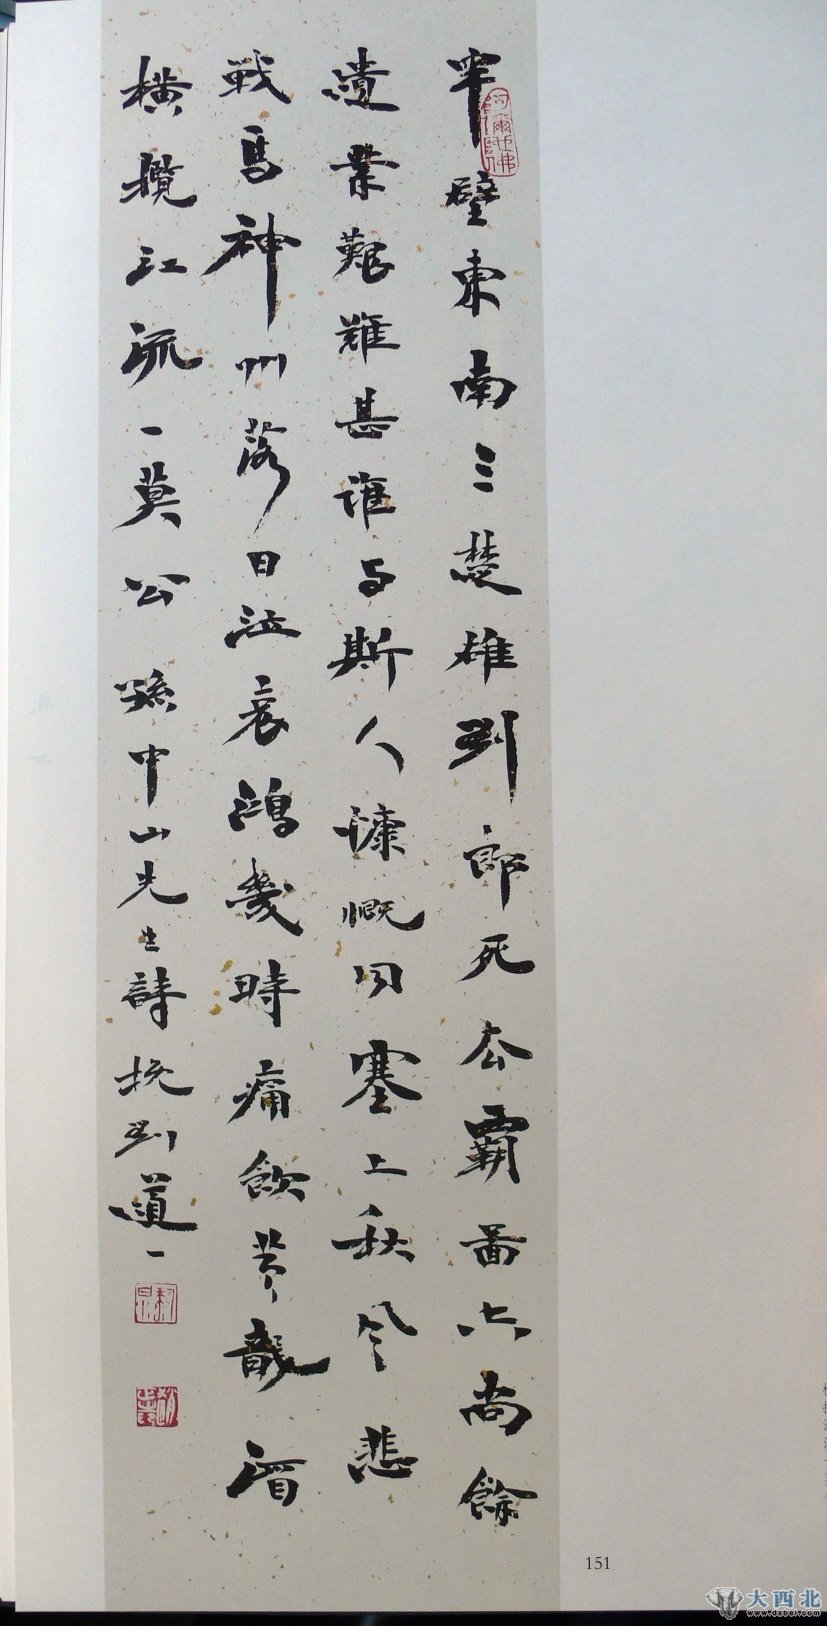 半壁東南三楚雄劉郎死去霸圖空尚餘
遺業艱難甚誰与斯人慷慨同塞上秋風悲
戰馬神州落日泣哀鴻幾時痛飲黃龍酒
橫攬江流一奠公 孫中山先生詩挽劉道一
151
大西北
www.dxbei.com